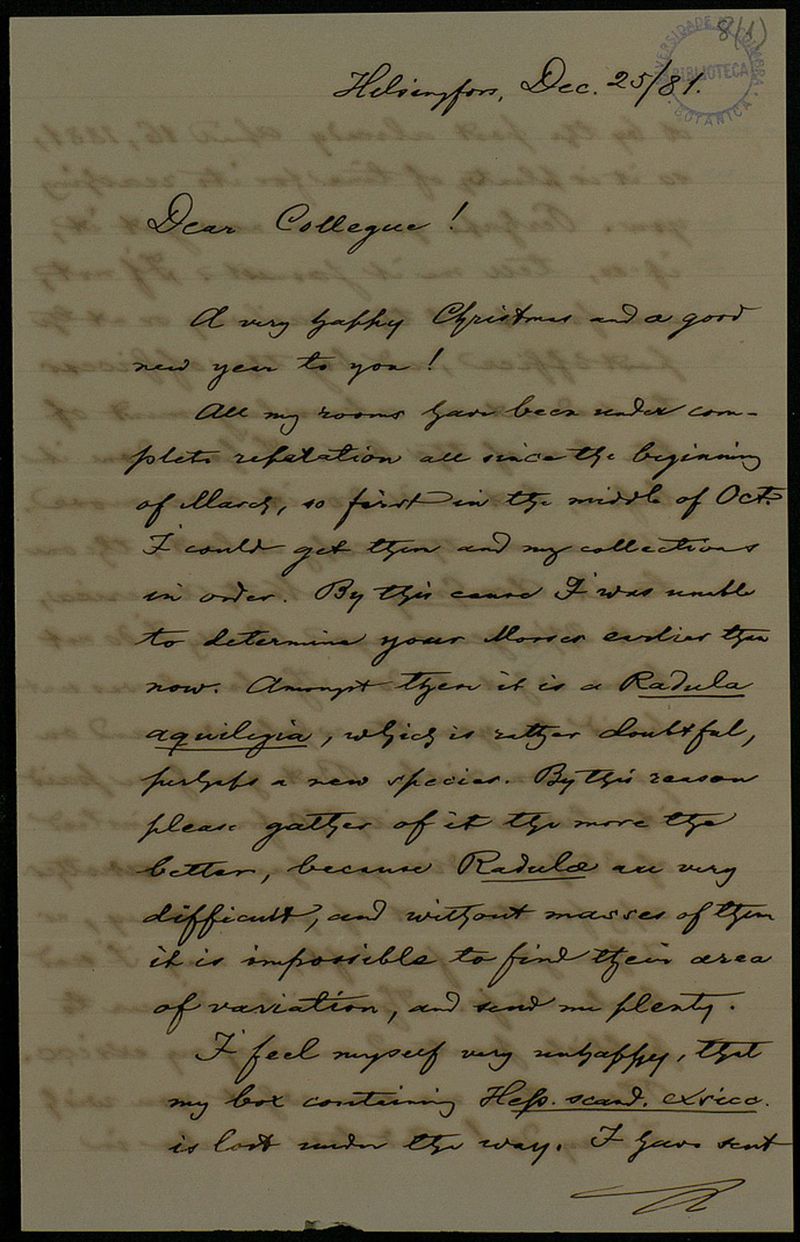 8(1)
UNIVERSIDADE DE COIMBRA
BIBLIOTECA
BOTANICA
Helsingfors, Dec. 25/81.
Dear Collegue!
A very happy Christmas and a good
new year to you!
All my rooms have been under com-
plete reparation all since the beginning
of March, so first in the middle of Oct.
I could get them and my collections
in order. By this cause I was unable
to determine your Mosses earlier than
now. Amongst them it is a Radula
aquilegia, which is rather doubtful,
perhaps a new species. By this reason
please gather of it the more the
better, because Radulæ are very
difficult, and without masses of them
it is impossible to find their area
of variation, and send me plenty.
I feel myself very unhappy, that
my box containing Hep. scand. exsicc.
is lost under the way. I have sent